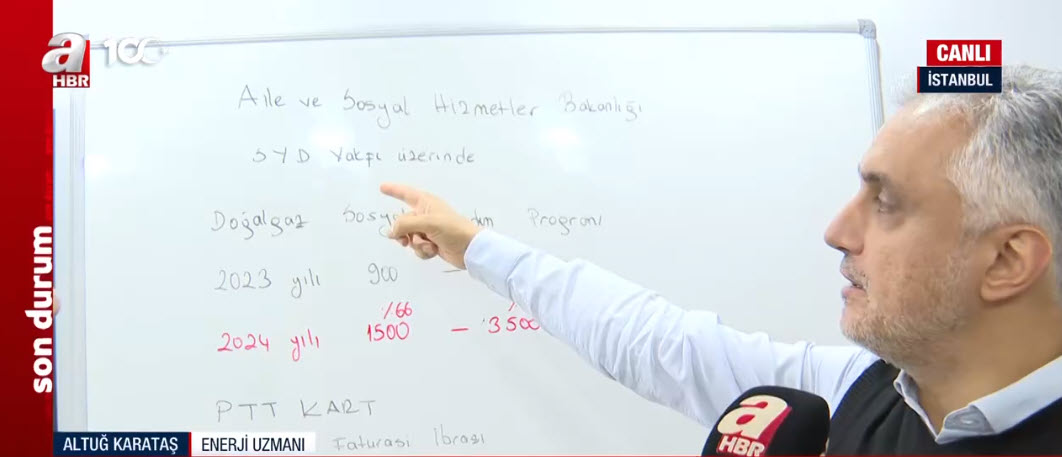 a HBR 100
CANLI
İSTANBUL
Aile ve Sosyal Hizmetler Bakanlığı
SYD Vakfı üzerinde
Doğalgaz Sosyal Programı
2023 yılı 900 –
%66
2024 yılı 1500 – 3500
PTT KART
Faturası İbrası
son durum
ALTUĞ KARATAŞ ENERJİ UZMANI
a HBR